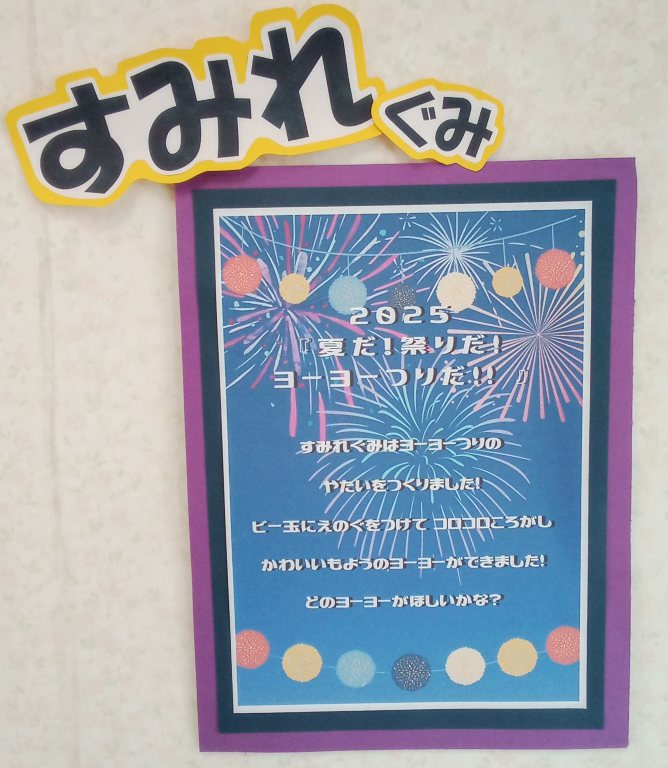 すみれ ぐみ
2025
『夏だ!祭りだ!
ヨーヨーつりだ!!』
すみれぐみはヨーヨーつりの
やたいをつくりました!
ビー玉にえのぐをつけて コロコロころがし
かわいいもようのヨーヨーができました!
どのヨーヨーがほしいかな?